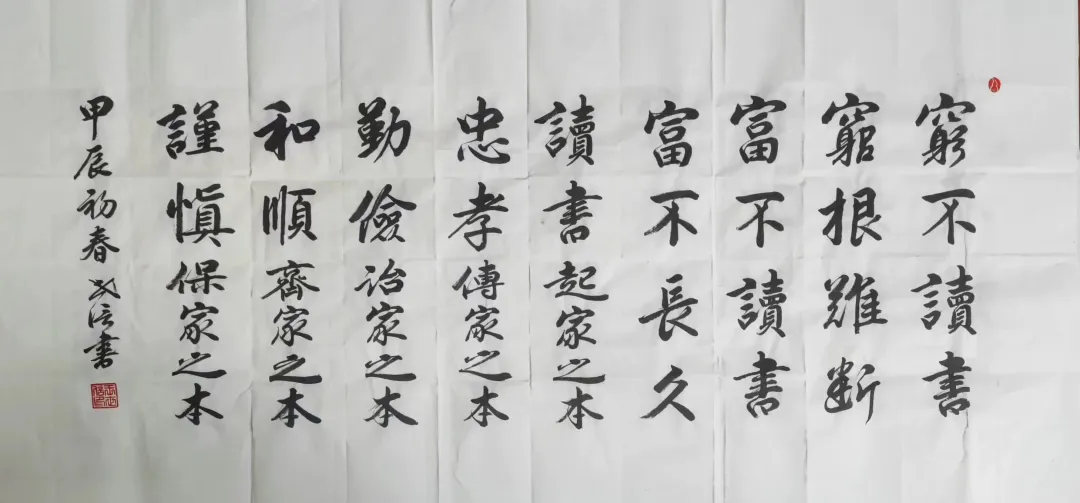 窮不讀書
窮根難斷
富不讀書
富不長久
讀書起家之本
忠孝傳家之本
勤儉治家之本
和順齊家之本
謹慎保家之本
甲辰初春 書